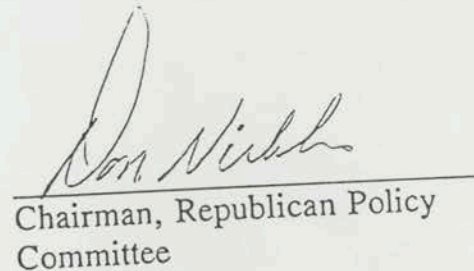 Don Nickles
Chairman, Republican Policy
Committee